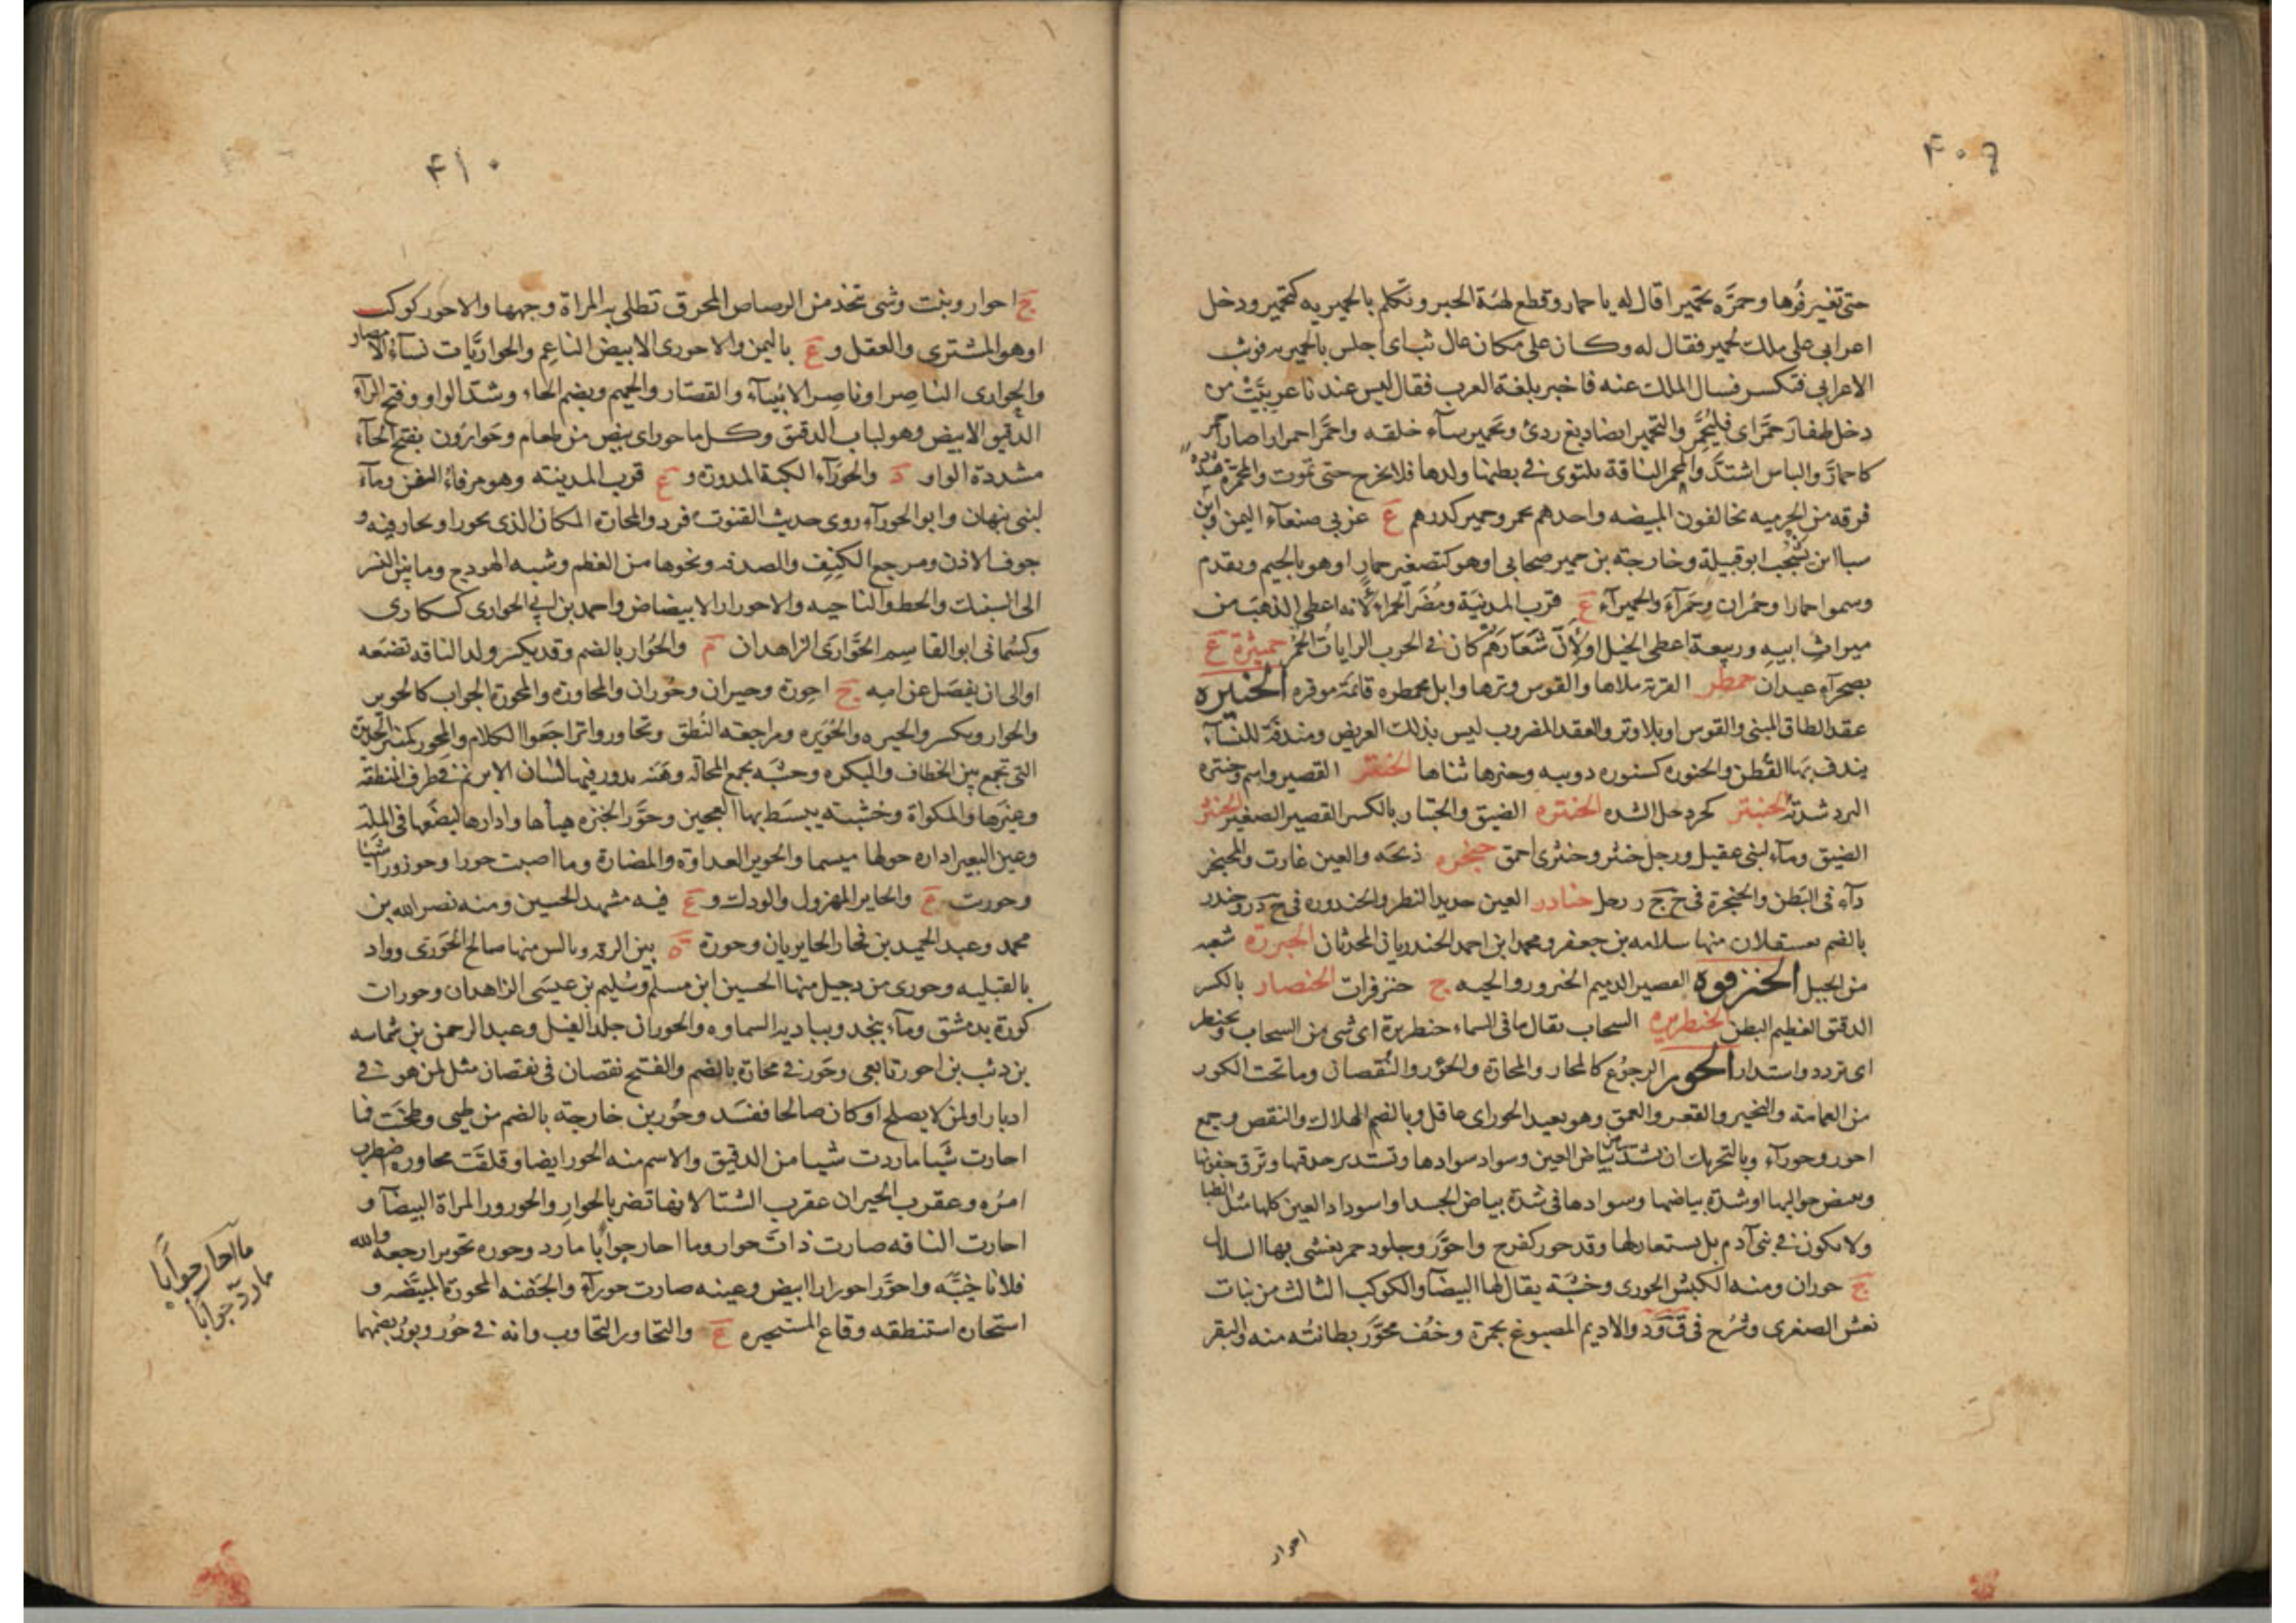 ۴۰۹
حتى تغير فوها وحمره تحميرا قال له يا حمار وقطع كهئة الهبر وتكلم بالحميريه كتحمير ودخل
اعرابى على ملك لحمير فقال له وكان على مكان عال ثب اى اجلس بالحميريه فوثب
الاعرابى فتكسر فسال الملك عنه فاخبر بلغة العرب فقال ليس عندنا عربيت من
دخل ظفار حمر اى فليحمر والتحمير ايضا دبغ ردئ وتحمير ساء خلقه واحمر احمرارا صار احمر
كاحمار والباس اشتد والمحمر الناقة يلتوى فى بطنها ولدها فلا يخرج حتى تموت والمحمرة مشددة
فرقه من الخرميه يخالفون المبيضه واحدهم محمر وحمير كدرهم ع غربى صنعاء اليمن وابن
سبا ابن يشجب ابو قبيلة وخارجة بن حمير صحابى او هو كتصغير حمار او هو بالجيم وتقدم
وسموا حمارا وحمران وحمرآء والحميرآء ع قرب المدينة ومضر الحمراء لانه اعطى الذهب من
ميراث ابيه وربيعة اعطى الخيل او لان شعارهم كان فى الحرب الرايات الحمر حميثرة ع
بصحرآء عيدان حمطر القربة ملاها والقوس وترها وابل محمطره قائمة موقره الحنيرة
عقد الطاق المبنى والقوس او بلا وتر والعقد المضروب ليس بذلك العريض ومندفة للنساء
يندف بها القطن والحنوره كسنوره دويبه وحنرها ثناها الحنتر القصير واسم وحنترة
البرد شدته الحنبتر كجردحل الشده الحنتره الضيق والحنتار بالكسر القصير الصغير الحنثر
الضيق ومآء لبنى عقيل ورجل حنثر وحنثرى احمق حنجره ذبحه والعين غارت والمحنجر
دآء فى البطن والحنجرة فى ح ج ر رجل حنادر العين حديد النظر والحندوره فى ح د ر وحندر
بالضم بعسقلان منها سلامه بن جعفر ومحمد ابن احمد الحندريان المحدثان الحنزرة شعبه
من الجبل الحنزقرة القصير الدميم الحنرور والحيه ج حنزقرات الحنصار بالكسر
الدقيق العظيم البطن الحنطريره السحاب يقال ما فى السماء حنطريرة اى شى من السحاب وتحنطر
اى تردد واستدار الحور الرجوع كالمحار والمحارة والحؤور والنقصان وما تحت الكور
من العمامة والتحير والقعر والعمق وهو بعيد الحور اى عاقل وبالضم الهلاك والنقص وجمع
احور وحورآء وبالتحريك ان يشتد بياض العين وسواد سوادها وتستدير حدقتها وترق جفونها
ويبيض حواليها او شدة بياضها وسوادها فى شدة بياض الجسد او اسوداد العين كلها مثل الظبا
ولا يكون فى بنى آدم بل يستعار لها وقد حور كفرح واحور وجلود حمر يغشى بها السلال
ج حوران ومنه الكبش الحورى وخشبة يقال لها البيضآ والكوكب الثالث من بنات
نعش الصغرى وشرح فى ق و د والاديم المصبوغ بحمرة وخف محور بطانته منه والبقر
احوار
۴۱۰
ج احوار ونبت وشى يتخذ من الرصاص المحرق تطلى به المراة وجهها والاحور كوكب
او هو المشترى والعقل و ع باليمن والاحورى الابيض الناعم والحواريات نسآء الامصار
والحوارى الناصر او ناصر الانبيآء والقصار والحميم وبضم الحاء وشد الواو وفتح الرآء
الدقيق الابيض وهو لباب الدقيق وكل ما حور اى بيض من طعام وحوارون بفتح الحآء
مشددة الواو د والحورآء الكية المدورة و ع قرب المدينه وهو مرفاء السفن ومآء
لبنى نبهان وابو الحورآء روى حديث القنوت فرد والمحارة المكان الذى يحور او يحار فيه و
جوف الاذن ومرجع الكتف والصدفه ونحوها من العظم وشبه الهودج وما بين النسر
الى السنبك والخط والناحيه والاحورار الابيضاض واحمد بن ابى الحوارى كسكارى
وكسمانى ابو القاسم الحوارى الزاهدان م والحوار بالضم وقد يكسر ولد الناقه تضعه
او الى ان يفصل عن امه ج احورة وحيران وحوران والمحاورة والمحورة الجواب كالحوير
والحوار ويكسر والحيره والحويره ومراجعه النطق وتحاوروا تراجعوا الكلام والمحور كمنبر الحديدة
التى تجمع بين الخطاف والبكره وخشبه يجمع المحالة وهنه يدور فيها لسان الابزيم فى طرف المنطقه
وغيرها والمكواة وخشبته يبسط بها العجين وحور الخبزه هياها وادارها ليضعها فى الملة
وعين البعير اداره حولها ميسما والحوير العداوة والمضارة وما اصبت حورا وحوزورا شيئا
وحوريت ع والحاير المهزول والودك و ع فيه مشهد الحسين ومنه نصر الله بن
محمد وعبد الحميد بن فخار الحايريان وحورة ة بين الرقه وبالس منها صالح الحورى وواد
بالقبليه وحورى من دجيل منها الحسين ابن مسلم وسليم بن عيسى الزاهدان وحوران
كورة بدمشق ومآء بنجد وبباديه السماوه والحوران جلد الفيل وعبد الرحمن بن شماسه
بن ذئب بن احور تابعى وحور فى محارة بالضم والفتح نقصان فى نقصان مثل لمن هو فى
ادبار او لمن لا يصلح او كان صالحا ففسد وحور بن خارجة بالضم من طيى وطحنت فما
احارت شيا ما ردت شيا من الدقيق والاسم منه الحور ايضا وقلقت محاوره اضطرب
امره وعقرب الحيران عقرب الشتا لانها تضر بالحوار والحورور المراة البيضآ و
احارت الناقه صارت ذات حوار وما احار جوابا ما رد وحوره تحويرا رجعه والله
فلانا خيبه واحور احورارا ابيض وعينه صارت حورآء والجفنه المحورة المبيضه و
استحاره استنطقه وقاع المستحيره ع والتحاور التجاوب وانه فى حور وبور بضمهما
ما احار جوابا
ما رد جوابا